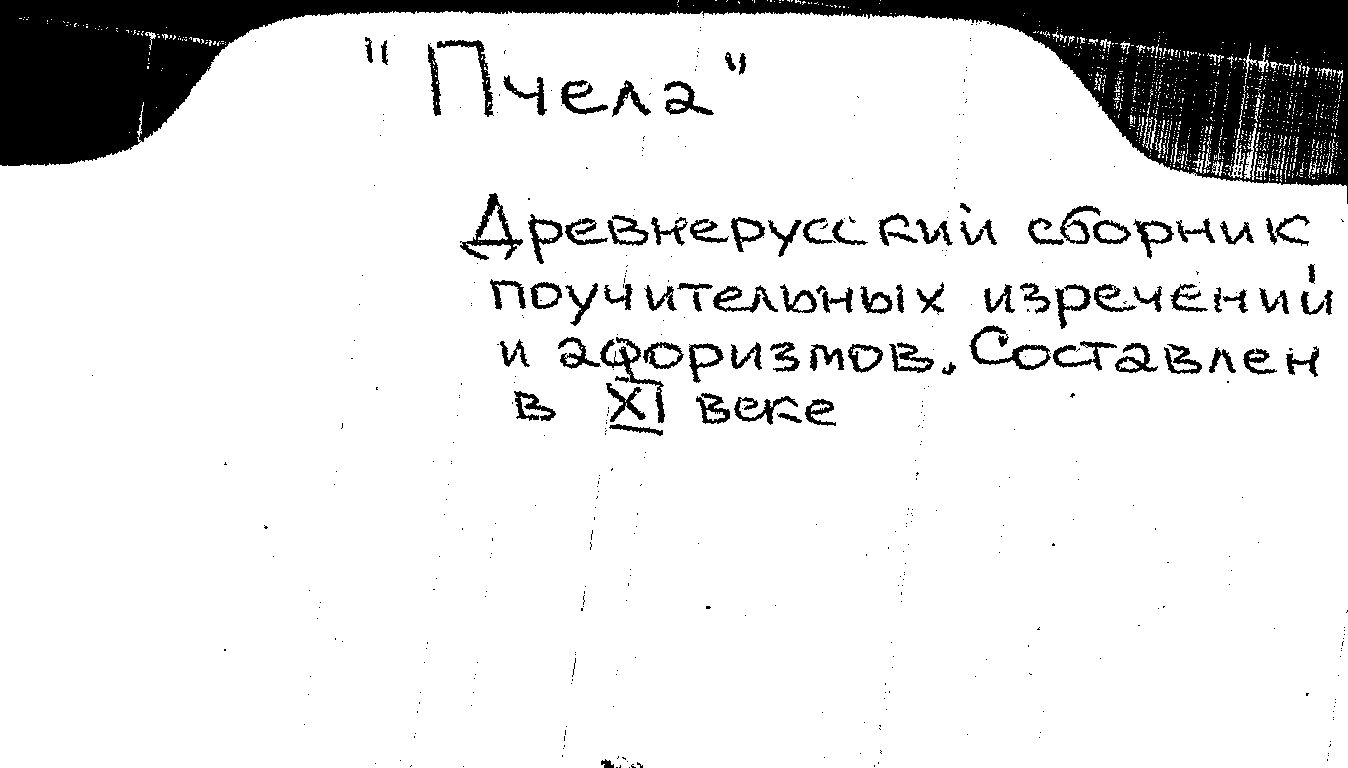 "Пчела"
Древнерусский сборник
поучительных изречений
и афоризмов. Составлен
в XI веке